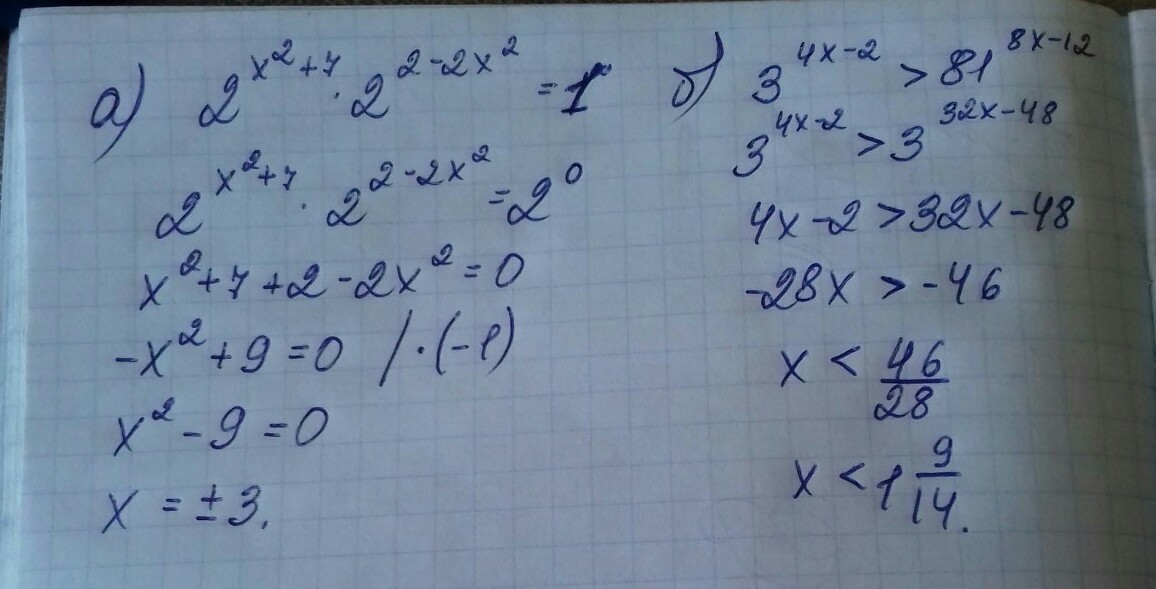 а) 2^(x²+7) · 2^(2-2x²) = 1
2^(x²+7) · 2^(2-2x²) = 2^0
x²+7+2-2x² = 0
-x²+9=0 /·(-1)
x²-9=0
x = ±3.
б) 3^(4x-2) > 81^(8x-12)
3^(4x-2) > 3^(32x-48)
4x-2 > 32x-48
-28x > -46
x < 46/28
x < 1 9/14.